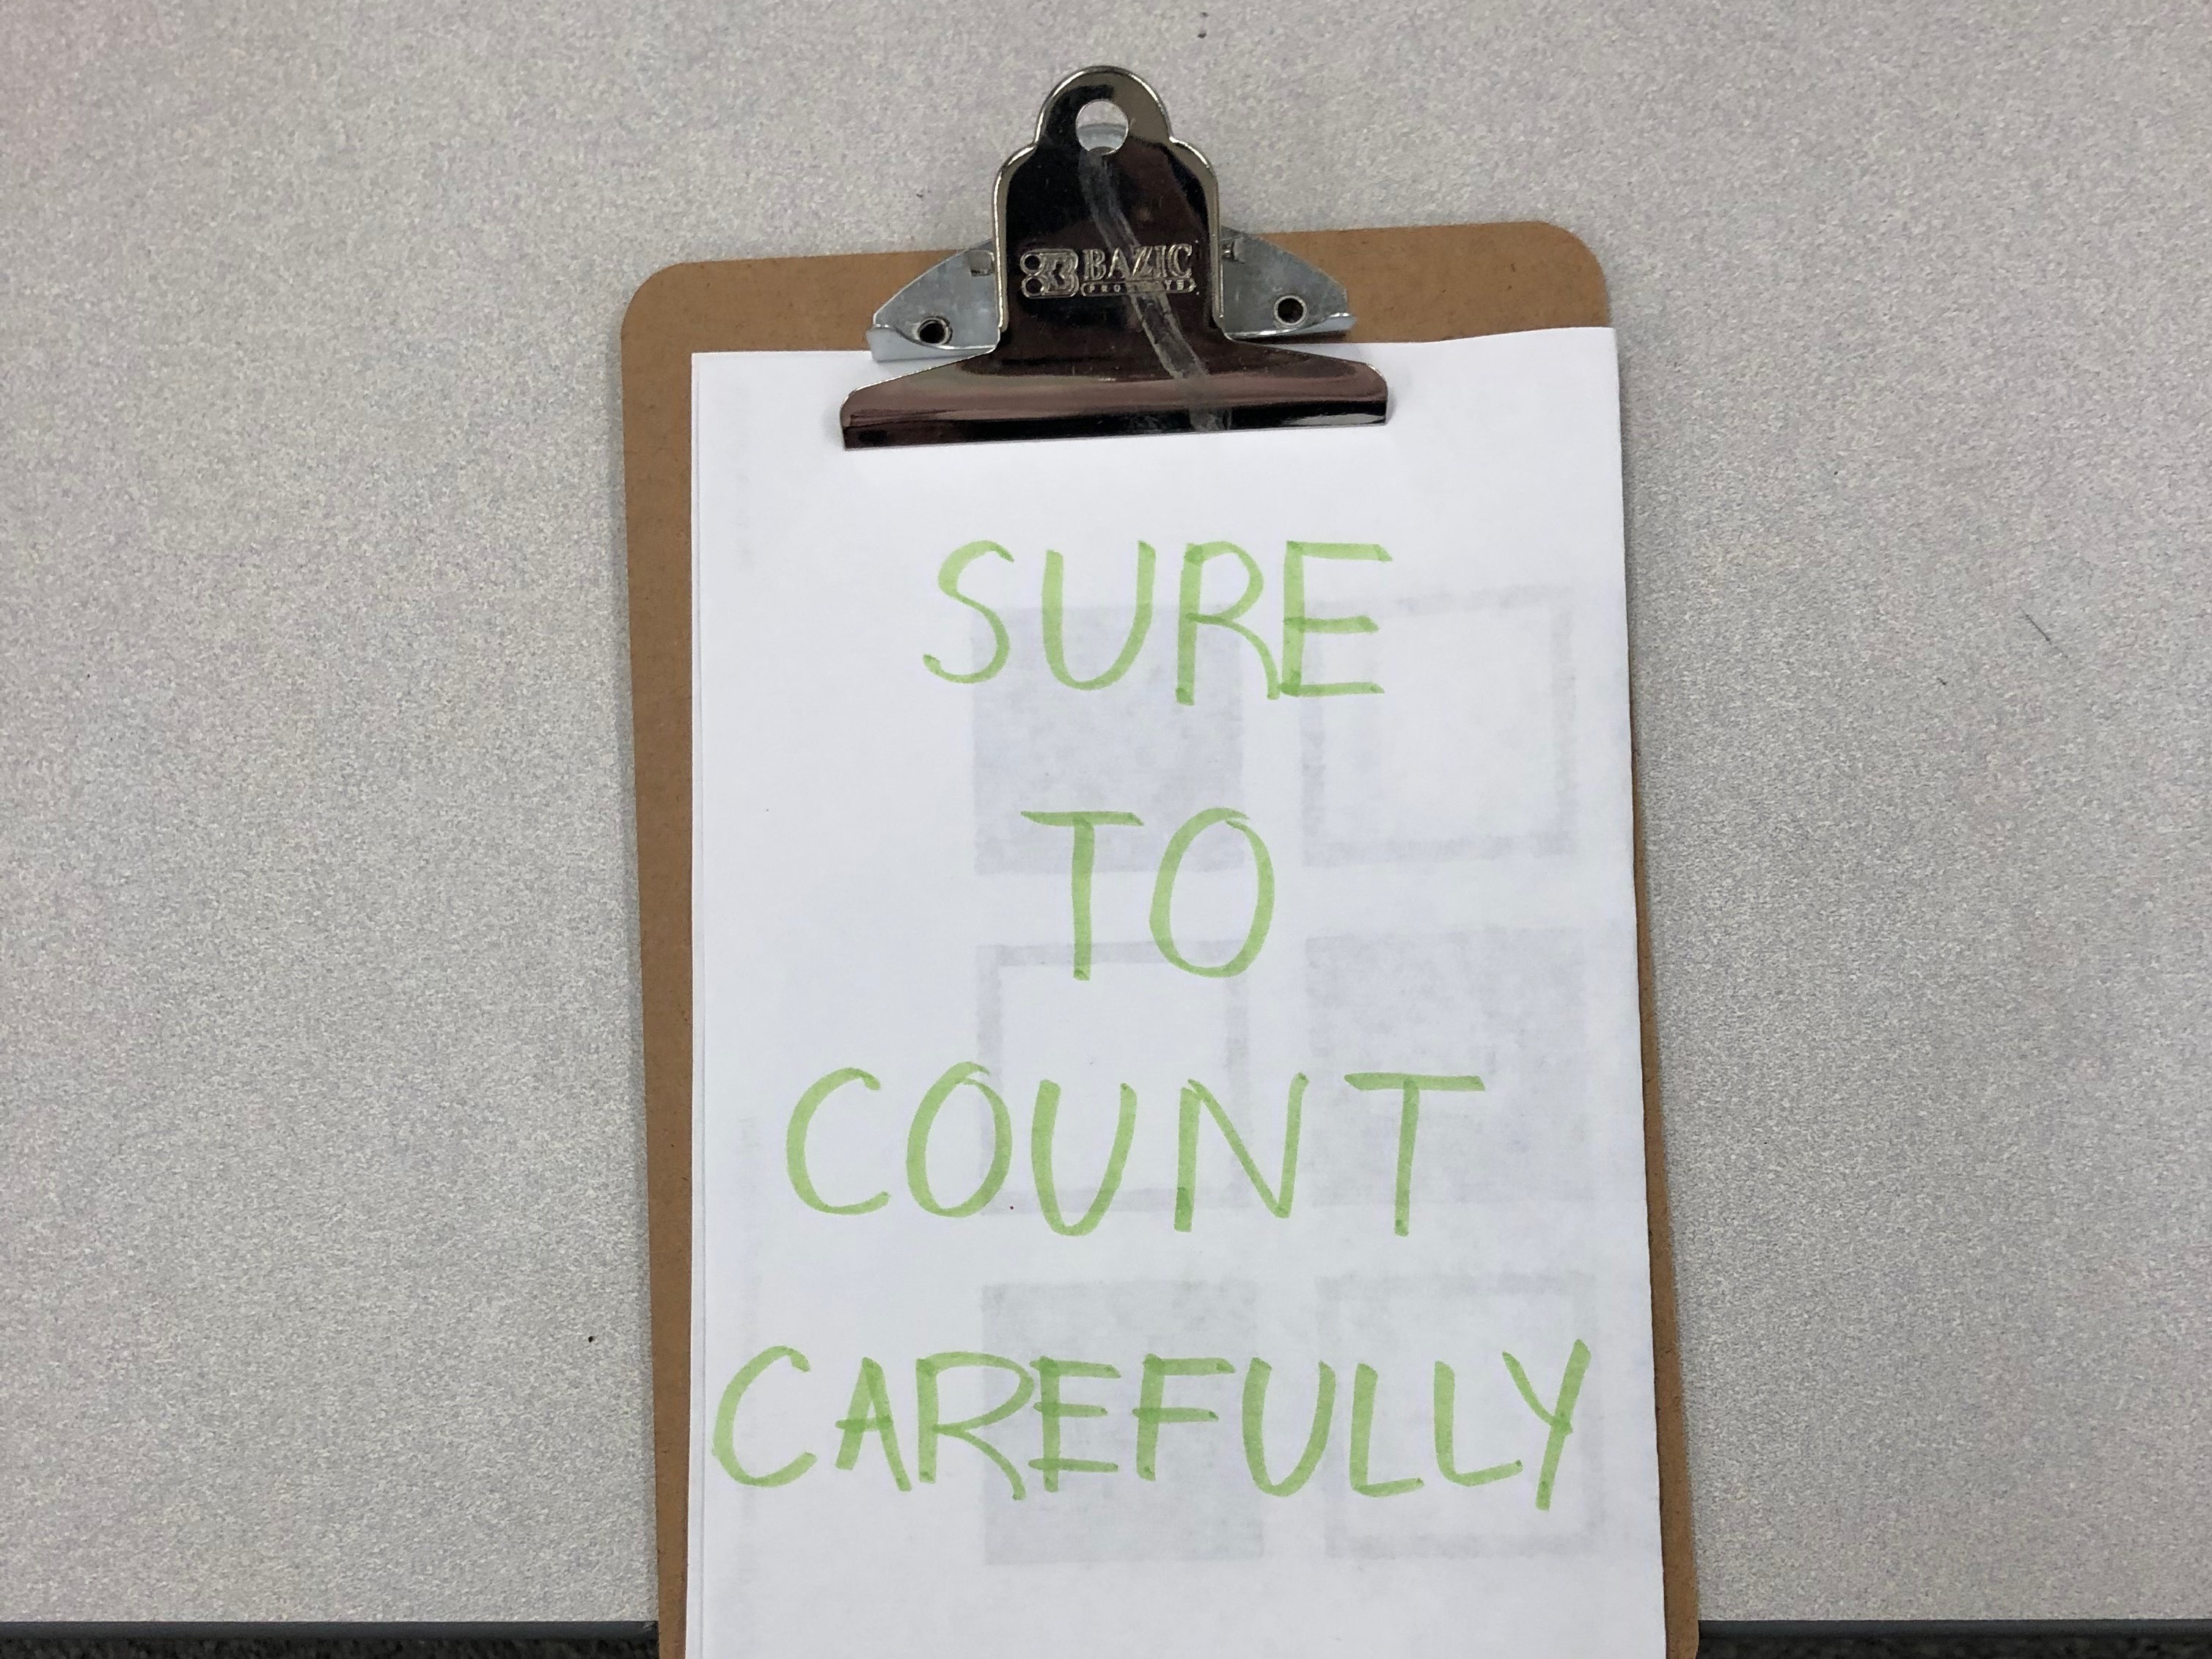 BAZIC
PRODUCTS
SURE
TO
COUNT
CAREFULLY